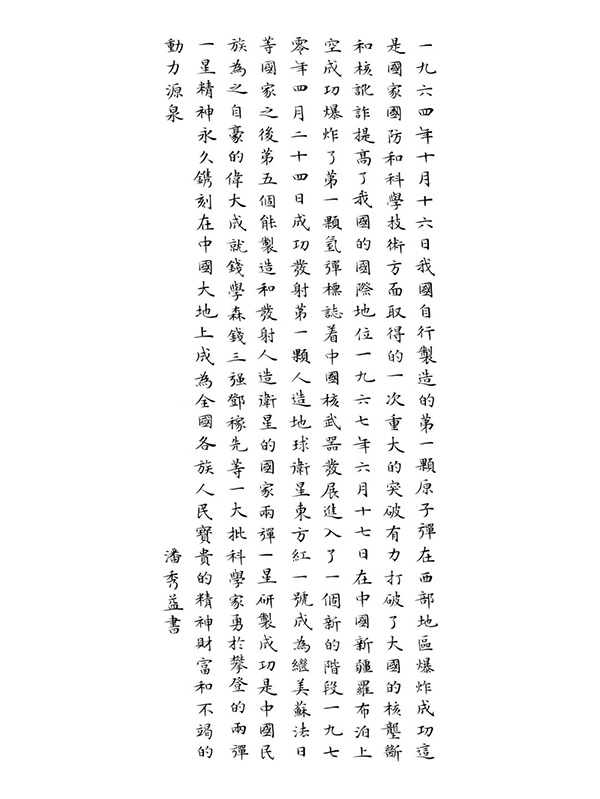 一九六四年十月十六日我國自行製造的第一顆原子彈在西部地區爆炸成功這
是國家國防和科學技術方面取得的一次重大的突破有力打破了大國的核壟斷
和核訛詐提高了我國的國際地位一九六七年六月十七日在中國新疆羅布泊上
空成功爆炸了第一顆氫彈標誌着中國核武器發展進入了一個新的階段一九七
零年四月二十四日成功發射第一顆人造地球衛星東方紅一號成為繼美蘇法日
等國家之後第五個能製造和發射人造衛星的國家兩彈一星研製成功是中國民
族為之自豪的偉大成就錢學森錢三强鄧稼先等一大批科學家勇於攀登的兩彈
一星精神永久鐫刻在中國大地上成為全國各族人民寶貴的精神財富和不竭的
動力源泉
潘秀益書